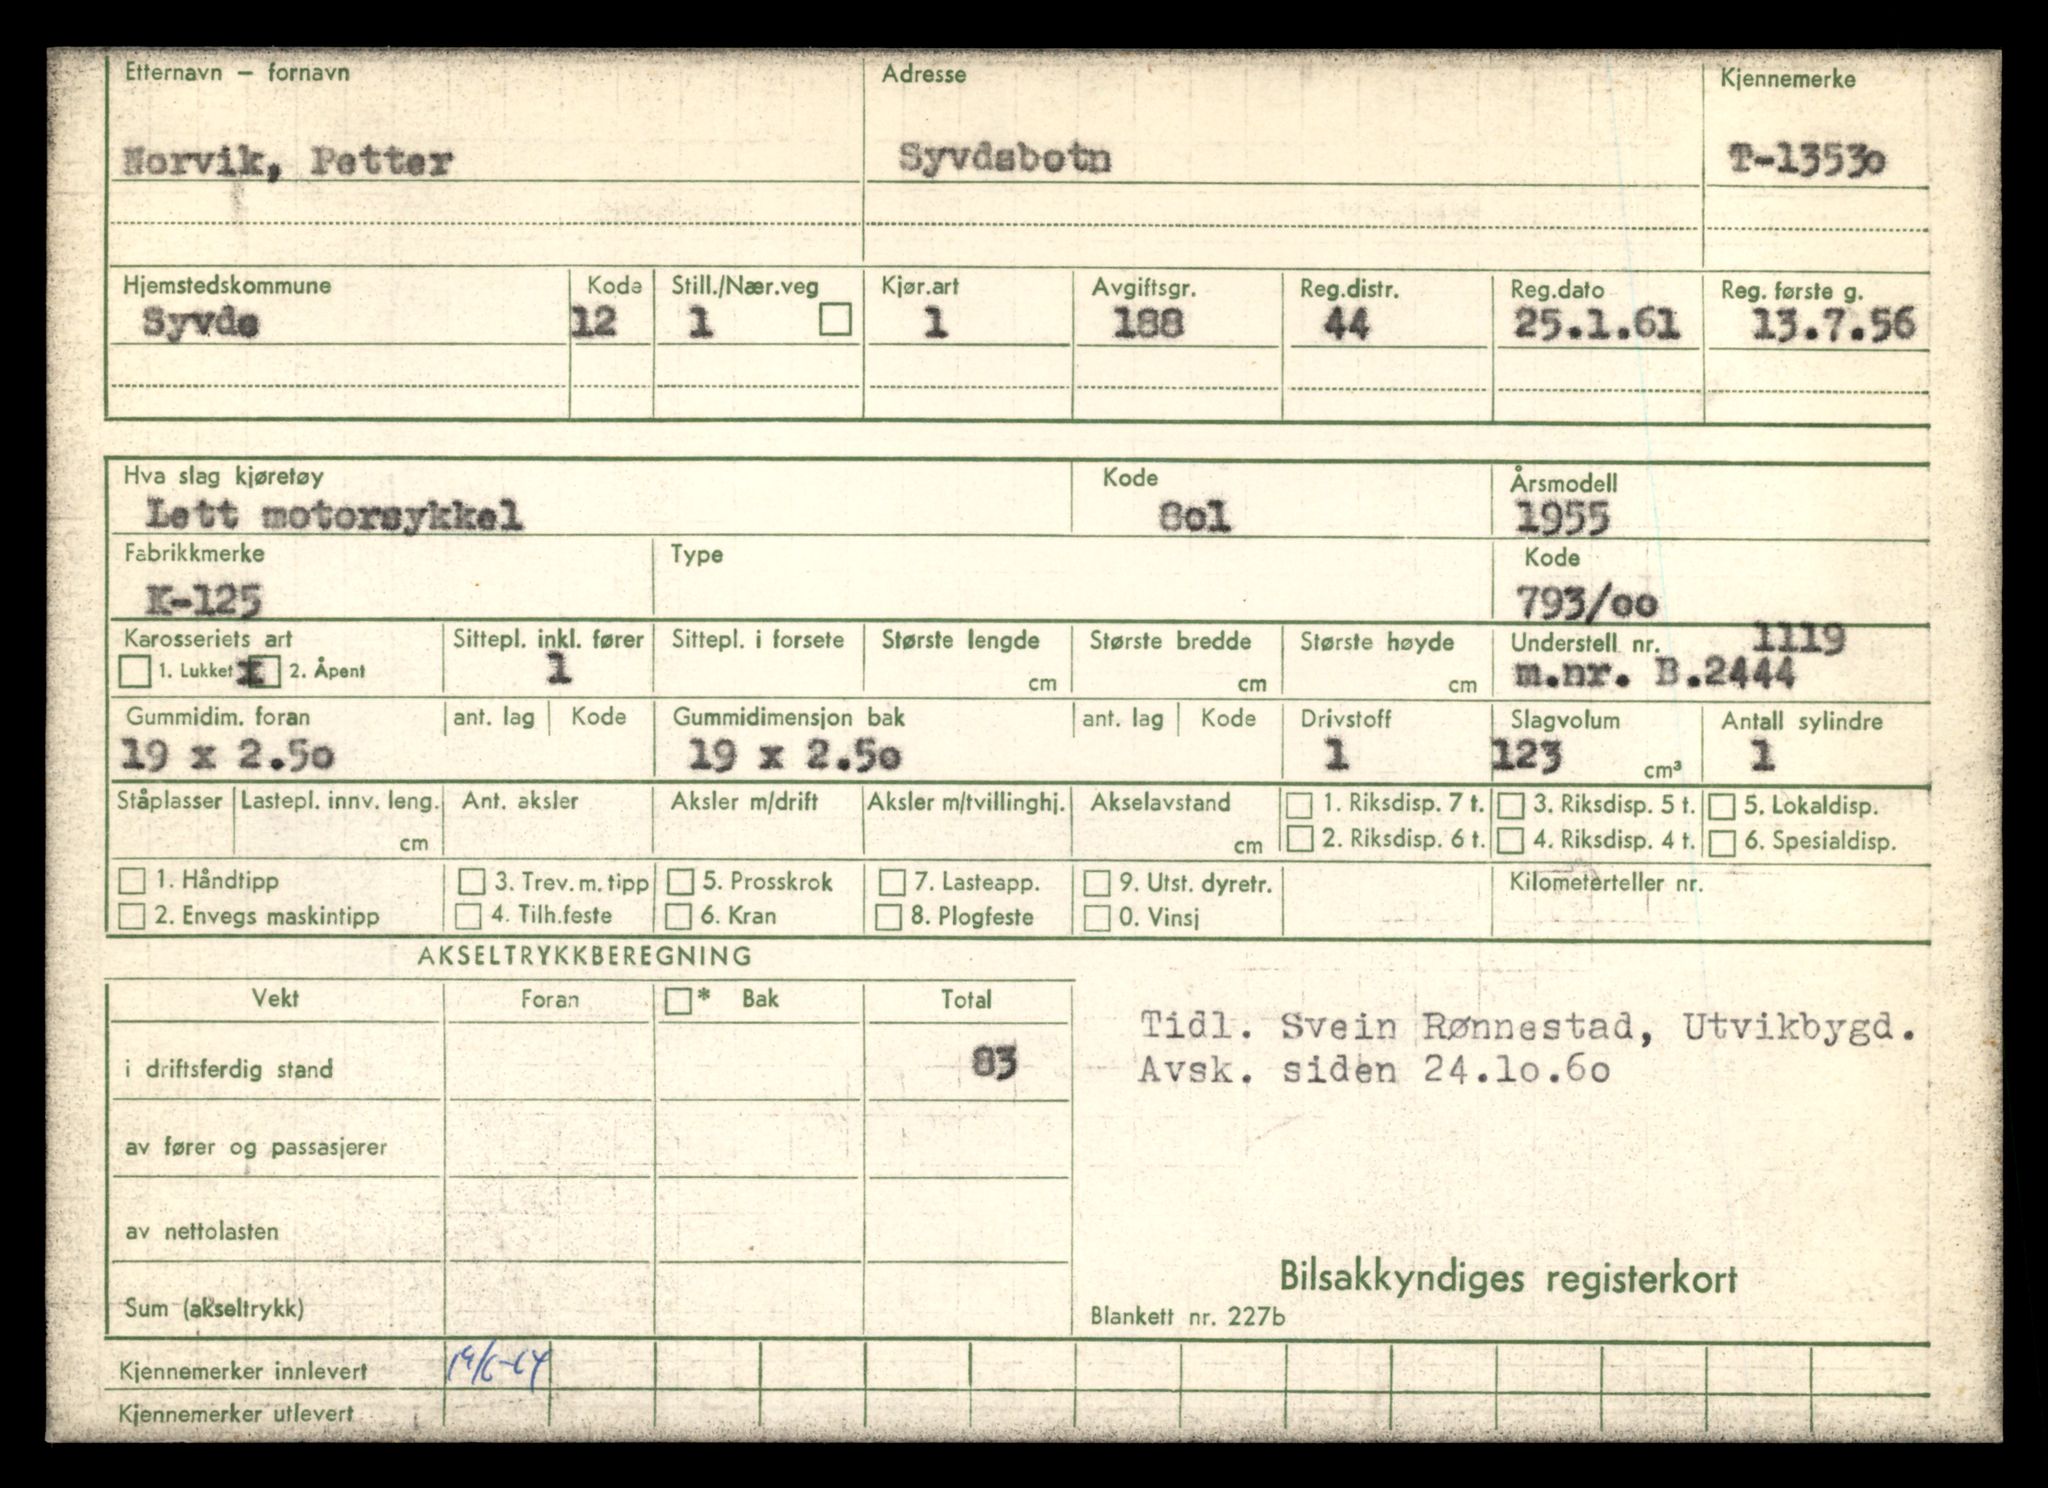 Etternavn – fornavn Adresse Kjennemerke
Norvik, Petter Syvdsbotn T-13530
Hjemstedskommune Kode Still./Nær.veg Kjør.art Avgiftsgr. Reg.distr. Reg.dato Reg. første g.
Syvde 12 1 1 188 44 25.1.61 13.7.56
Hva slag kjøretøy Kode Årsmodell
Lett motorsykkel 8o1 1955
Fabrikkmerke Type Kode
K-125 793/oo
Karosseriets art Sittepl. inkl. fører Sittepl. i forsete Største lengde Største bredde Største høyde Understell nr. 1119
1. Lukket x 2. Åpent 1 cm cm cm m.nr. B.2444
Gummidim. foran ant. lag Kode Gummidimensjon bak ant. lag Kode Drivstoff Slagvolum Antall sylindre
19 x 2.5o 19 x 2.5o 1 123 cm³ 1
Ståplasser Lastepl. innv. leng. Ant. aksler Aksler m/drift Aksler m/tvillinghj. Akselavstand 1. Riksdisp. 7 t. 3. Riksdisp. 5 t. 5. Lokaldisp.
cm cm 2. Riksdisp. 6 t. 4. Riksdisp. 4 t. 6. Spesialdisp.
1. Håndtipp 3. Trev. m. tipp 5. Prosskrok 7. Lasteapp. 9. Utst. dyretr. Kilometerteller nr.
2. Envegs maskintipp 4. Tilh.feste 6. Kran 8. Plogfeste 0. Vinsj
AKSELTRYKKBEREGNING
Vekt Foran * Bak Total
Tidl. Svein Rønnestad, Utvikbygd.
i driftsferdig stand 83
Avsk. siden 24.1o.6o
av fører og passasjerer
av nettolasten
Bilsakkyndiges registerkort
Sum (akseltrykk) Blankett nr. 227b
Kjennemerker innlevert
Kjennemerker utlevert